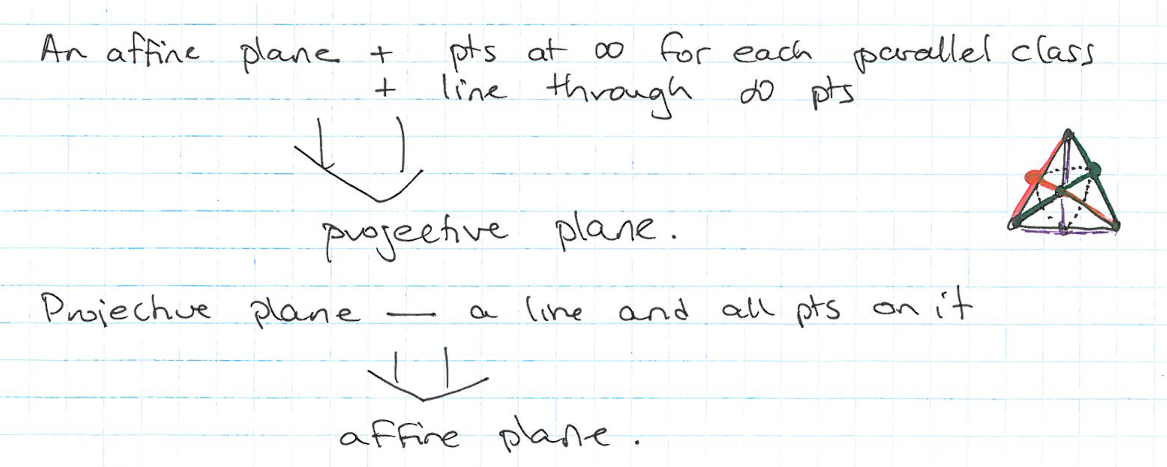 An affine plane + pts at ∞ for each parallel class
+ line through ∞ pts
projective plane.
Projective plane — a line and all pts on it
affine plane.